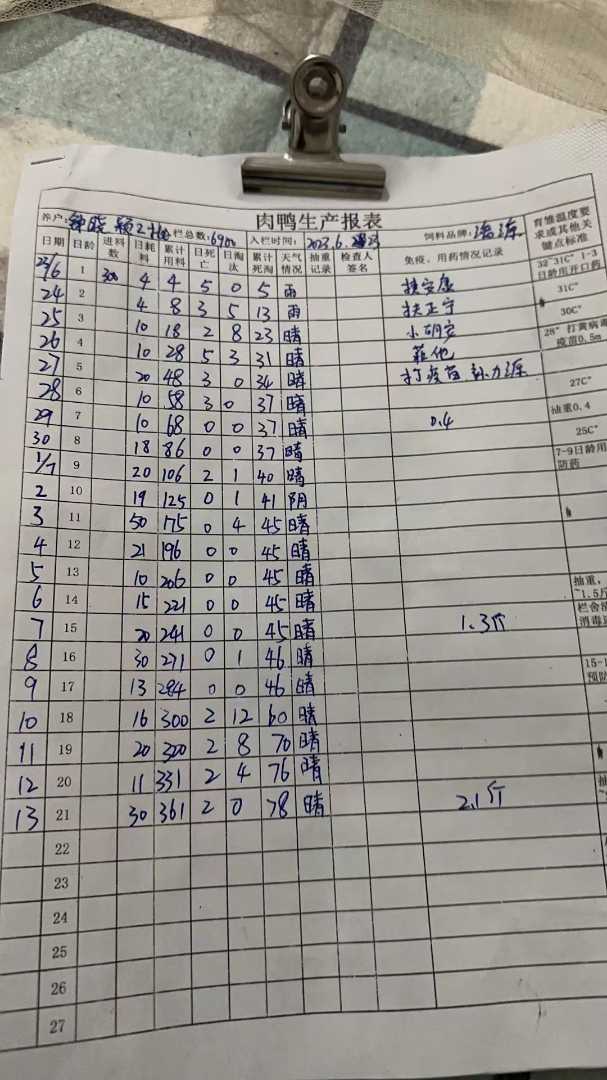 肉鸭生产报表
养户: 栏总数:6900 入栏时间: 2023.6. 饲料品牌:
日期 日龄 进料数 日耗料 累计用料 日死亡 日淘汰 累计死淘 天气情况 抽重记录 检查人签名 免疫、用药情况记录 育雏温度要求或其他关键点标准
23/6 1 300 4 4 5 0 5 雨 扶安康 32~31C° 1-3日龄用开口药
24 2 4 8 3 5 13 雨 扶正宁 31C°
25 3 10 18 2 8 23 晴 30C°
26 4 10 28 5 3 31 晴 28° 打黄病毒疫苗0.5m
27 5 20 48 3 0 34 晴 打疫苗
28 6 10 58 3 0 37 晴 27C°
29 7 10 68 0 0 37 晴 0.4 抽重0.4
30 8 18 86 0 0 37 晴 25C°
1/7 9 20 106 2 1 40 晴 7-9日龄用防药
2 10 19 125 0 1 41 阴
3 11 50 175 0 4 45 晴
4 12 21 196 0 0 45 晴
5 13 10 206 0 0 45 晴
6 14 15 221 0 0 45 晴 抽重,~1.5斤
7 15 20 241 0 0 45 晴 1.3斤 栏舍消毒
8 16 30 271 0 1 46 晴
9 17 13 284 0 0 46 晴 15-1 预防
10 18 16 300 2 12 60 晴
11 19 20 320 2 8 70 晴
12 20 11 331 2 4 76 晴
13 21 30 361 2 0 78 晴 2.1斤
22
23
24
25
26
27